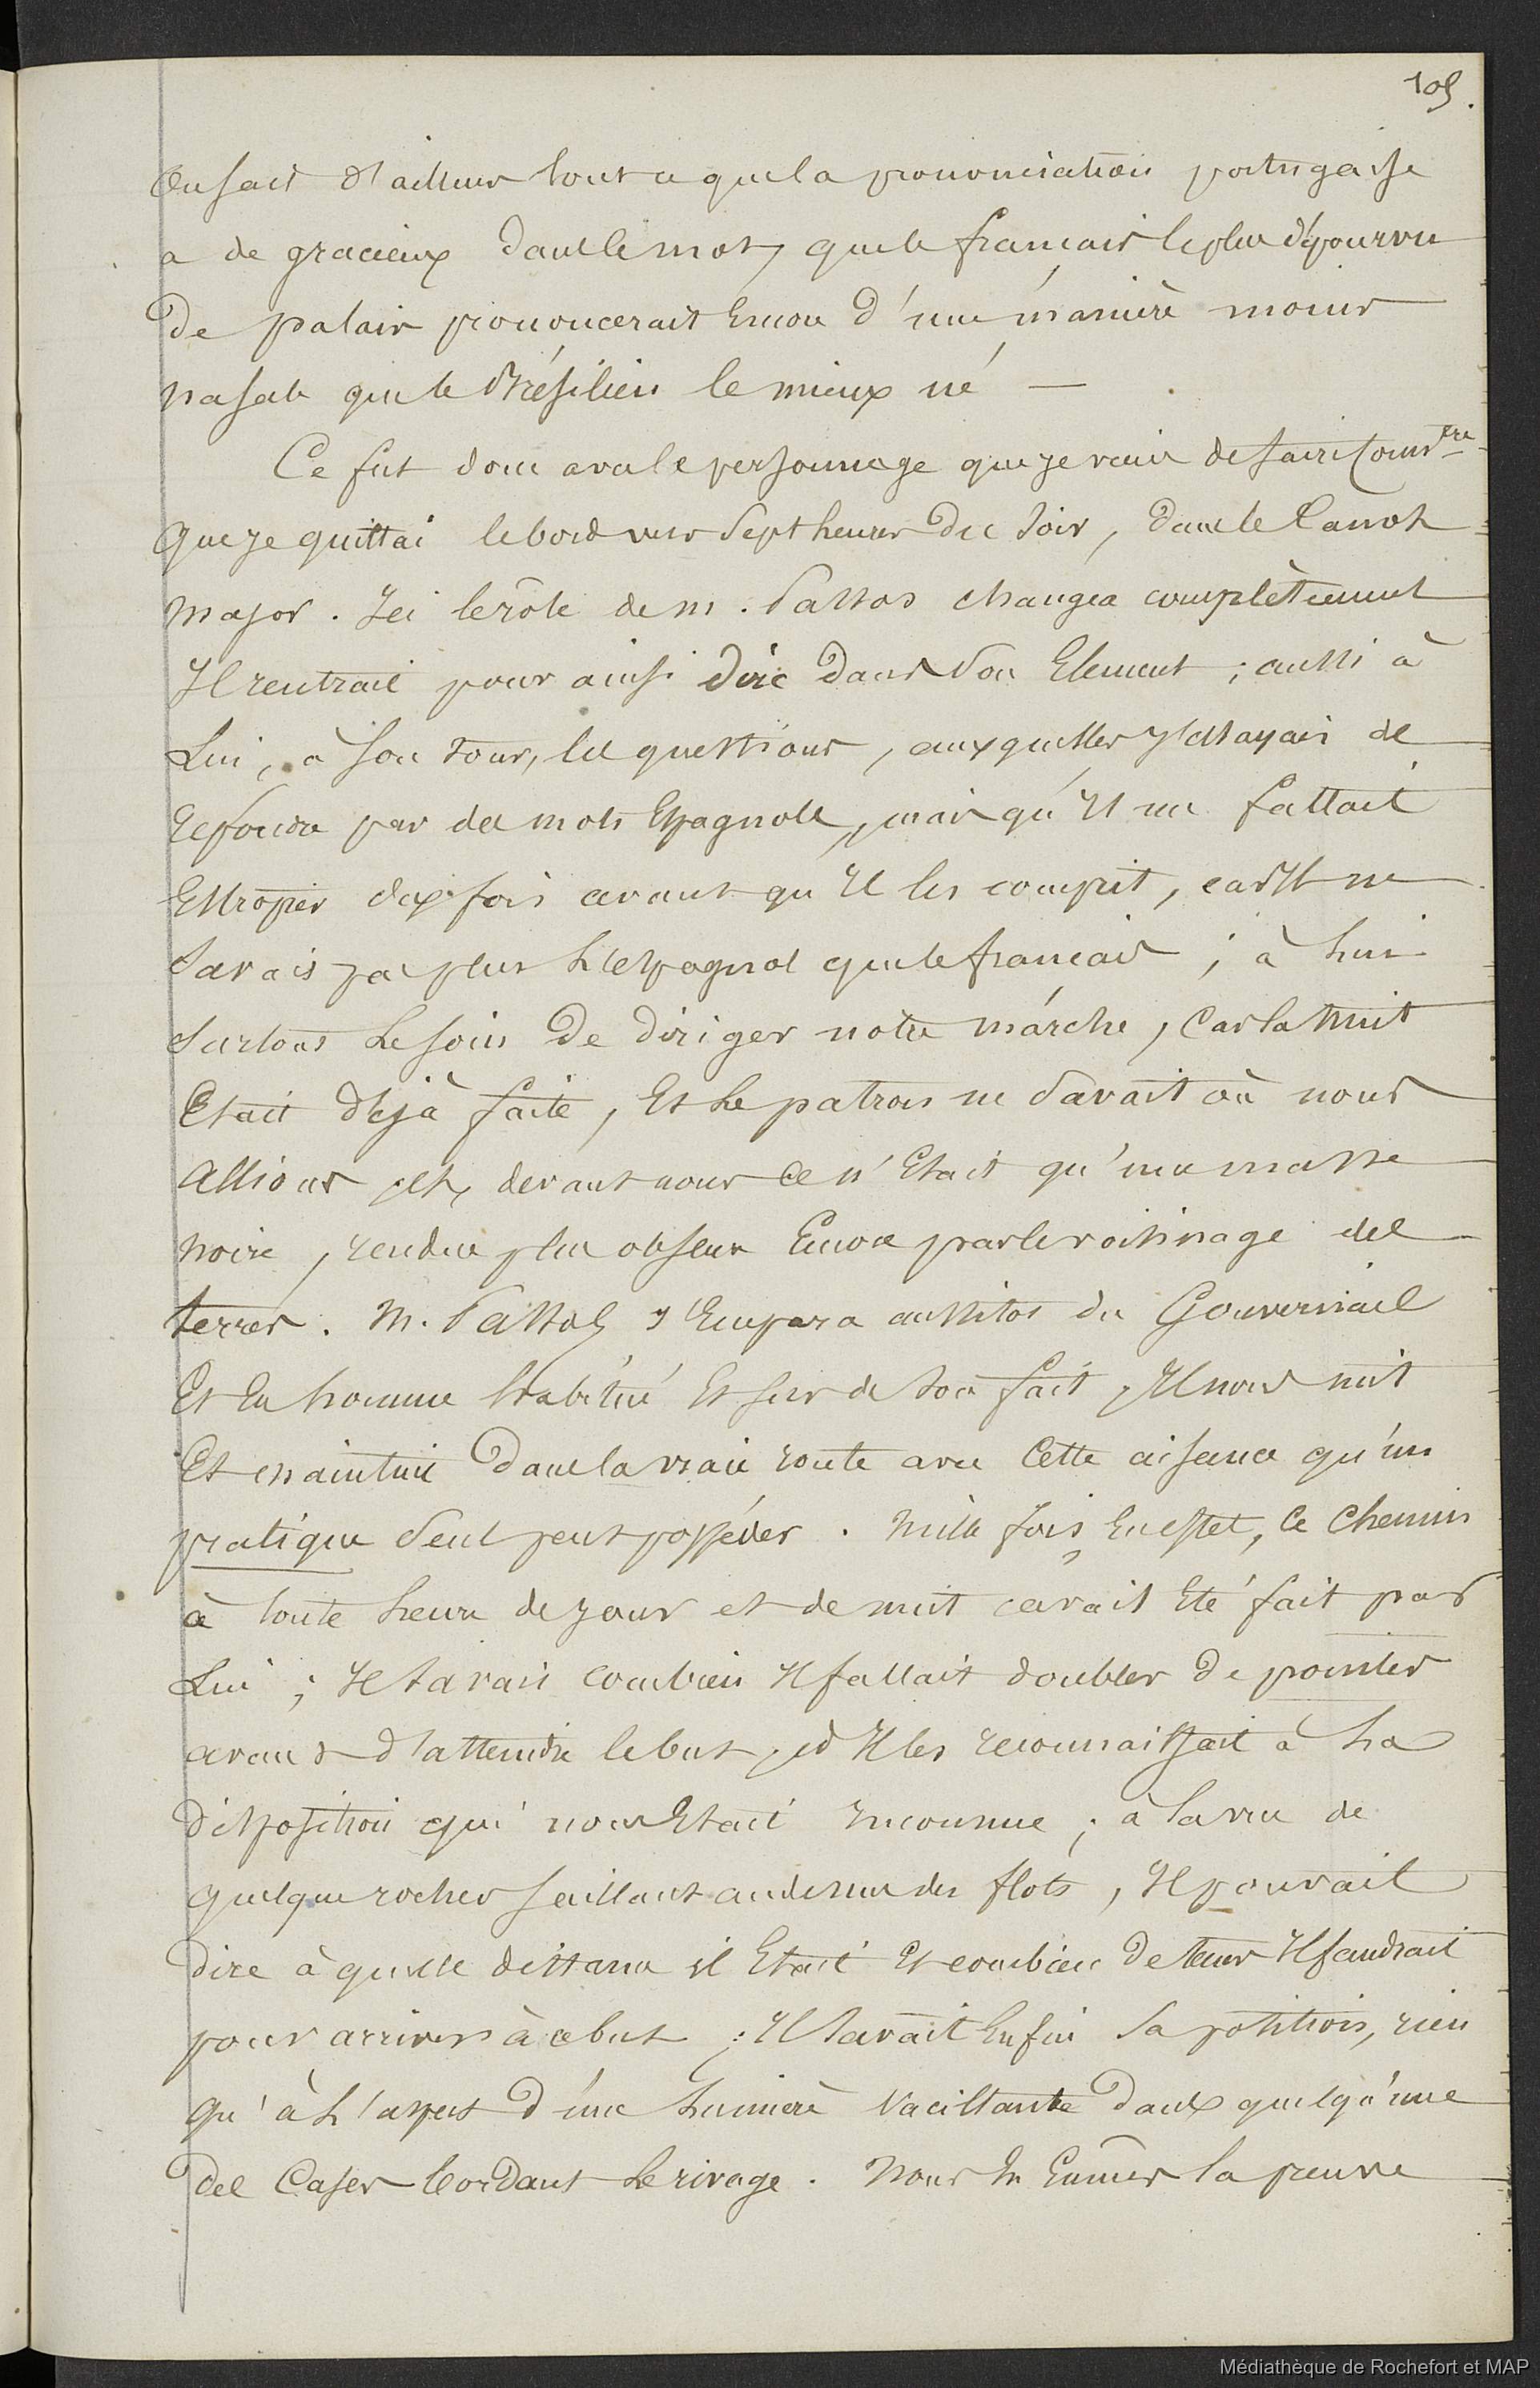 105.
On sait d'ailleurs tout ce que la prononciation portugaise
a de gracieux dans le mot, que le français le plus dépourvu
de palais prononcerait Encore d'une manière moins
nasale que le Brésilien le mieux né —
Ce fut donc avec le personnage que je viens de faire Connre
que je quittai le bord vers Sept heures du Soir, dans le Canot
major. Ici le rôle de M. Passos changea complètement
Il rentrait pour ainsi dire dans Son Element ; aussi à
Lui, à Son tour, les questions, auxquelles j'essayais de
repondre par des mots Espagnols, mais qu'Il me fallait
Estropier dix fois avant qu'Il les comprit, car Il ne
Savais pas plus L'espagnol que le français ; à Lui
Surtout Le Soin De Diriger notre marche, Car la Nuit
Etait déjà faite, Et Le patron ne Savait où nous
allions et, devant nous Ce n'Etait qu'une masse
noire, rendue plus obscure Encore par le voisinage des
terres. M. Passos s'Empara aussitot du Gouvernail
Et En homme habitué Et sûr de Son fait, Il nous mit
Et maintint Dans la vraie route avec Cette aisance qu'un
pratique Seul peut posséder. Mille fois En effet, Ce Chemin
à toute heure de jour et de nuit avait Eté fait par
Lui ; Il Savait Combien Il fallait doubler de pointes
avant d'atteindre le but, et Il les reconnaissait à La
disposition qui nous Etait Inconnue ; à la vue de
quelque rocher Saillant au dessus des flots, Il pouvait
dire à quelle distance il Etait Et combien de tems Il faudrait
pour arriver à ce but ; Il Savait Enfin Sa position, rien
qu'à L'aspect d'une Lumière Vacillante Dans quelqu'une
des Cases bordant Le rivage. Nous En Eûmes la preuve
Médiathèque de Rochefort et MAP